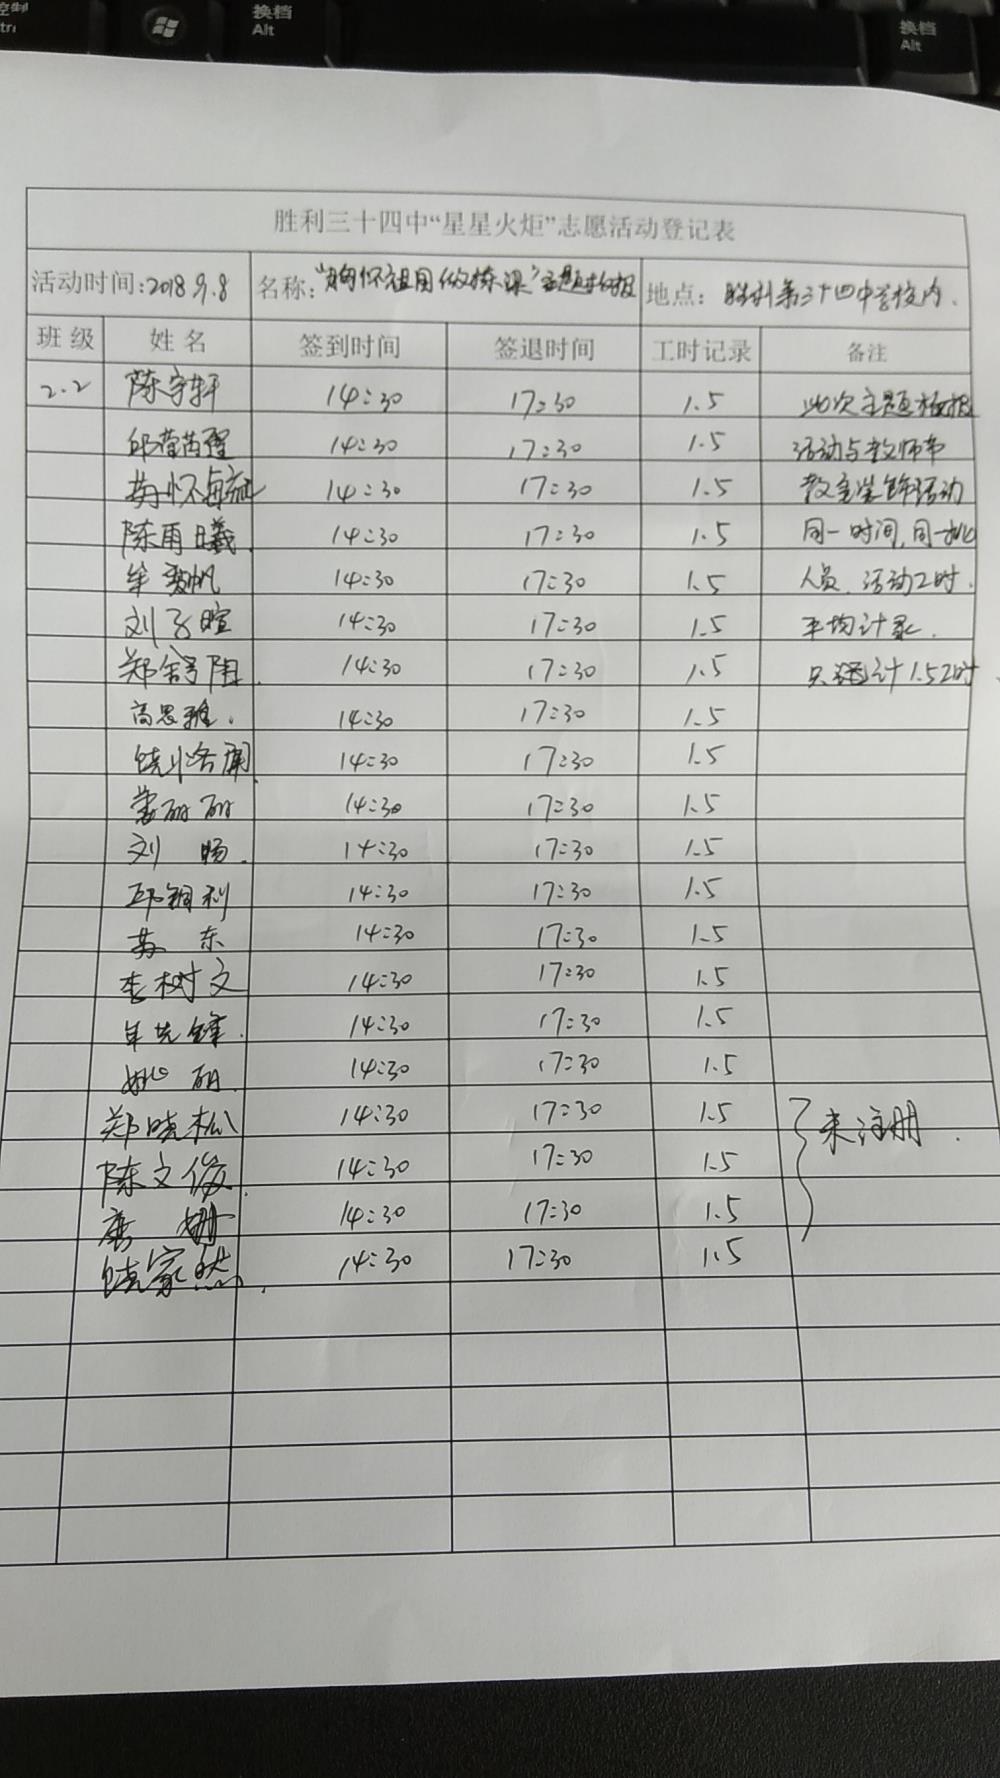 控制
换档
Alt
换档
Alt
胜利三十四中“星星火炬”志愿活动登记表
活动时间:2018.9.8 名称:“胸怀祖国做栋梁”主题板报 地点:胜利第三十四中学校内.
班级 姓名 签到时间 签退时间 工时记录 备注
2.2 陈宇轩 14:30 17:30 1.5 此次主题板报
14:30 17:30 1.5 活动与教师节
14:30 17:30 1.5 教室装饰活动
陈雨曦. 14:30 17:30 1.5 同一时间,同一批
14:30 17:30 1.5 人员.活动工时.
刘子暄 14:30 17:30 1.5 平均计录.
郑舒阳. 14:30 17:30 1.5 只统计1.5工时.
高思雅. 14:30 17:30 1.5
14:30 17:30 1.5
14:30 17:30 1.5
刘 旸. 14:30 17:30 1.5
14:30 17:30 1.5
苏 东 14:30 17:30 1.5
李树文 14:30 17:30 1.5
牟先锋. 14:30 17:30 1.5
姚 丽. 14:30 17:30 1.5
郑晓松 14:30 17:30 1.5 未注册.
陈文俊. 14:30 17:30 1.5
唐 姗 14:30 17:30 1.5
饶家然. 14:30 17:30 1.5